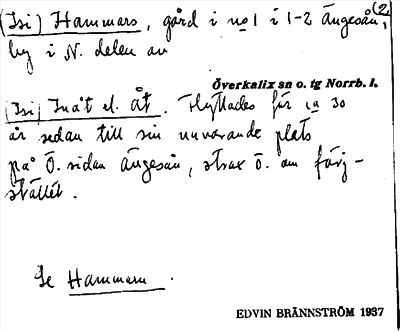 (2.
(Isi) Hammars, gård i no 1 i 1-2 Ängesån,
by i N. delen av
Överkalix sn o. tg Norrb. l.
(Isi) Inåt el. åt. Flyttades för ca 30
år sedan till sin nuvarande plats
på Ö. sidan Ängesån, strax ö. om färj-
stället.
Se Hammarn.
EDVIN BRÄNNSTRÖM 1937